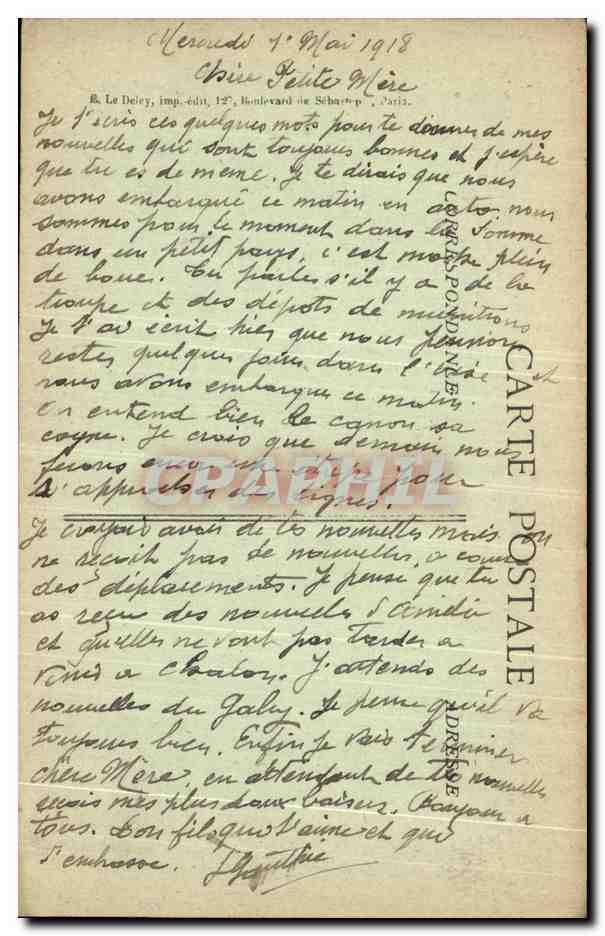 Mercredi 1° Mai 1918
Chère Petite Mère
E. Le Deley, imp.-édit, 127, Boulevard de Sébastop, Paris.
Je t'écris ces quelques mots pour te donner de mes
nouvelles qui sont toujours bonnes et j'espère
que tu es de meme. Je te dirais que nous
avons embarqué ce matin en auto nous
sommes pour le moment dans la Somme
dans un petit pays, c'est plein
de boue. Tu parles s'il y a de la
troupe et des dépots de munitions
Je t'ai écrit hier que nous pensions
rester quelques jours dans l'Oise et
nous avons embarqué ce matin.
On entend bien le canon sa
cogne. Je crois que demain nous
ferons encore une étape pour
s'approcher des lignes.
Je croyais avoir de tes nouvelles mais on
ne recoit pas de nouvelles, a cause
des déplacements. Je pense que tu
as reçu des nouvelles d'
et qu'elles ne vont pas tarder a
venir a Chalon. J'attends des
nouvelles du Gaby. Je pense qu'il va
toujours bien. Enfin je vais terminer
chère Mère en attendant de tes nouvelles
recois mes plus doux baisers. Bonjour a
tous. Ton fils qui t'aime et qui
t'embrasse.
CORRESPONDANCE
CARTE POSTALE
ADRESSE
CARAPHIL